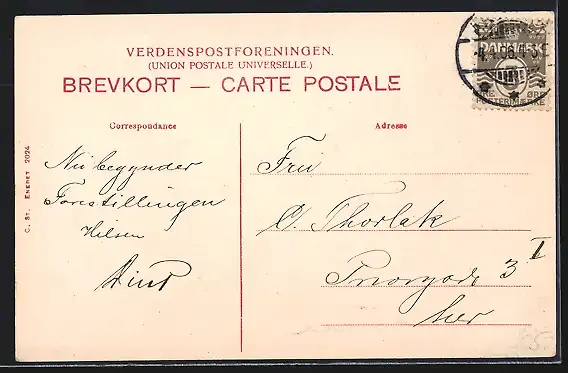 VERDENSPOSTFORENINGEN.
(UNION POSTALE UNIVERSELLE.)
BREVKORT — CARTE POSTALE
DANMARK
ØRE
POSTFRIMÆRKE
Correspondance
Adresse
C. St. Eneret 2024
Nu begynder
Forestillingen
Hilsen
Fru
C/ Thorlak
3 I
her